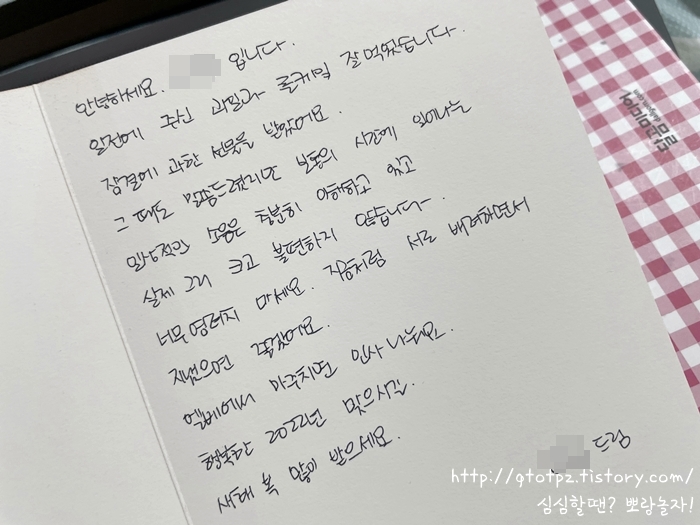 안녕하세요. 입니다.
일전에 주신 과일과 롤케익 잘 먹었습니다.
잠결에 과한 선물을 받았어요.
그 때도 말씀드렸지만 보통의 시간에 일어나는
일상적인 소음은 충분히 이해하고 있고
실제 그리 크고 불편하지 않습니다-
너무 염려치 마세요. 지금처럼 서로 배려하면서
지냈으면 좋겠어요.
엘베에서 마주치면 인사 나눠요.
행복한 2022년 맞으시길.
새해 복 많이 받으세요.
드림
http://qtotpz.tistory.com/
심심할땐? 뽀람놀자!